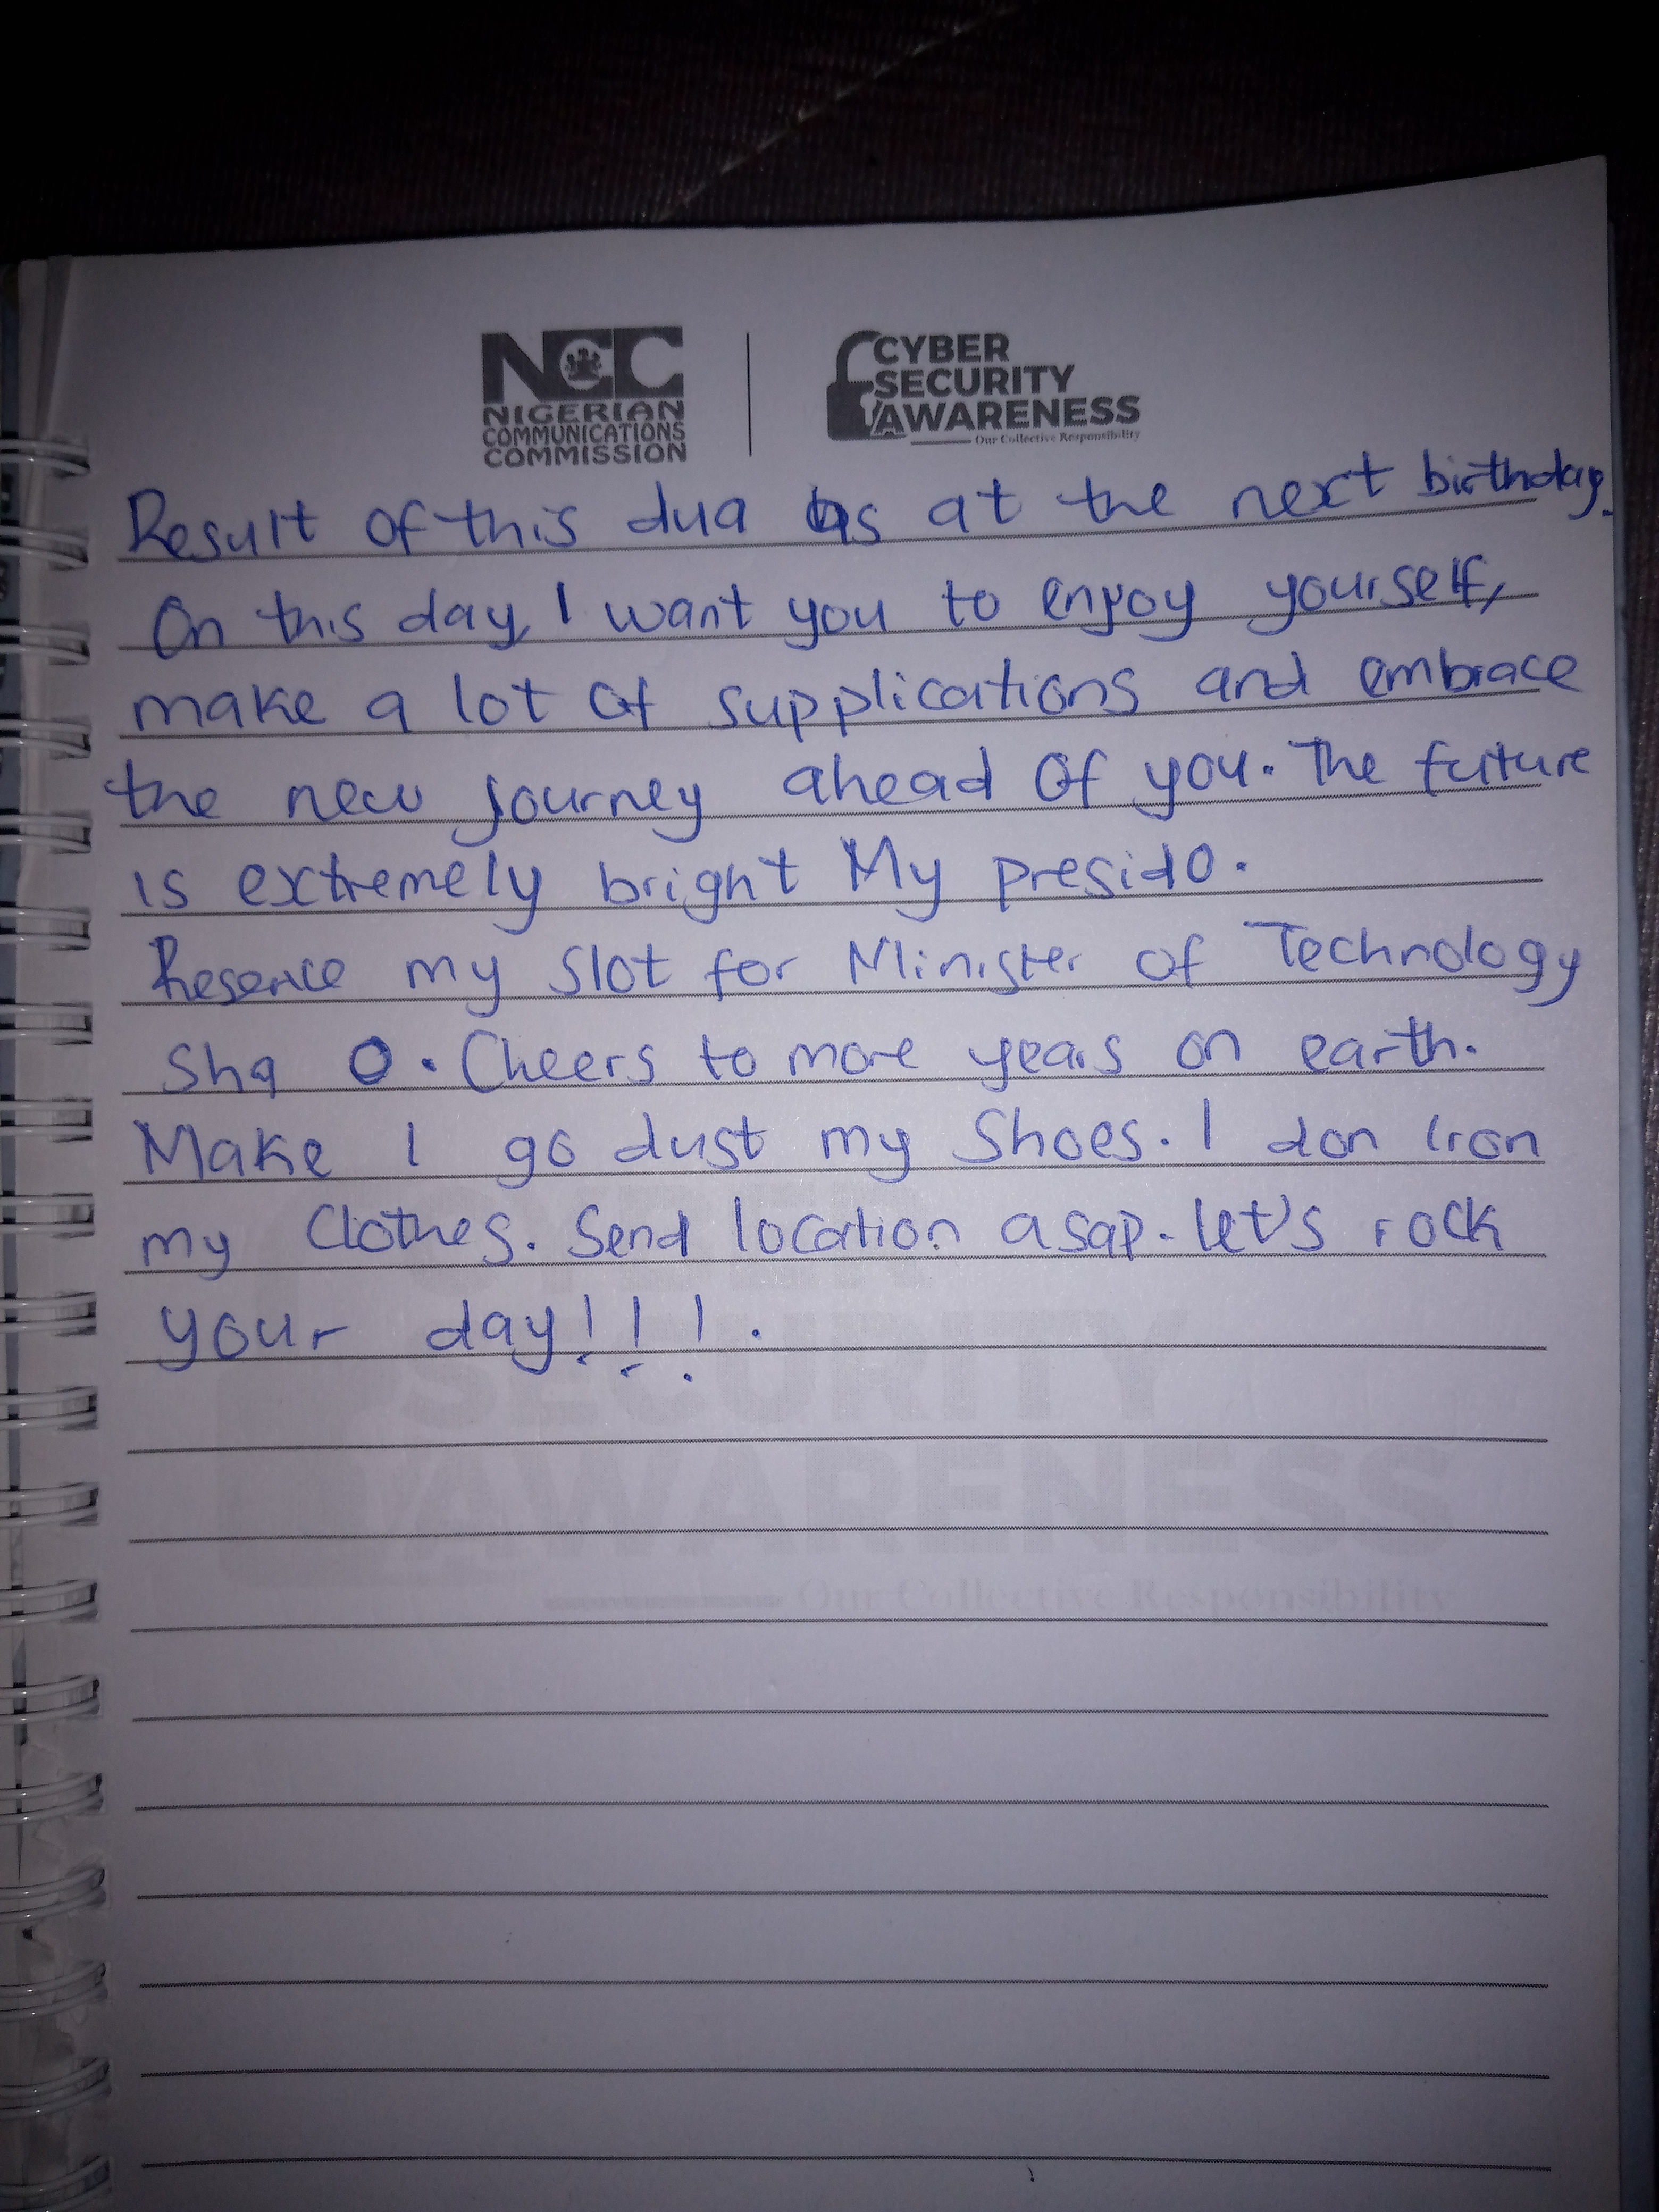 NCC
NIGERIAN
COMMUNICATIONS
COMMISSION
CYBER
SECURITY
AWARENESS
Our Collective Responsibility
Result of this dua as at the next birthday.
On this day, I want you to enjoy yourself,
make a lot of supplications and embrace
the new journey ahead of you. The future
is extremely bright My presido.
Reserve my slot for Minister of Technology
Sha O. Cheers to more years on earth.
Make I go dust my Shoes. I don Iron
my Clothes. Send location asap. let's rock
your day!!!.
SECURITY
AWARENESS
Our Collective Responsibility